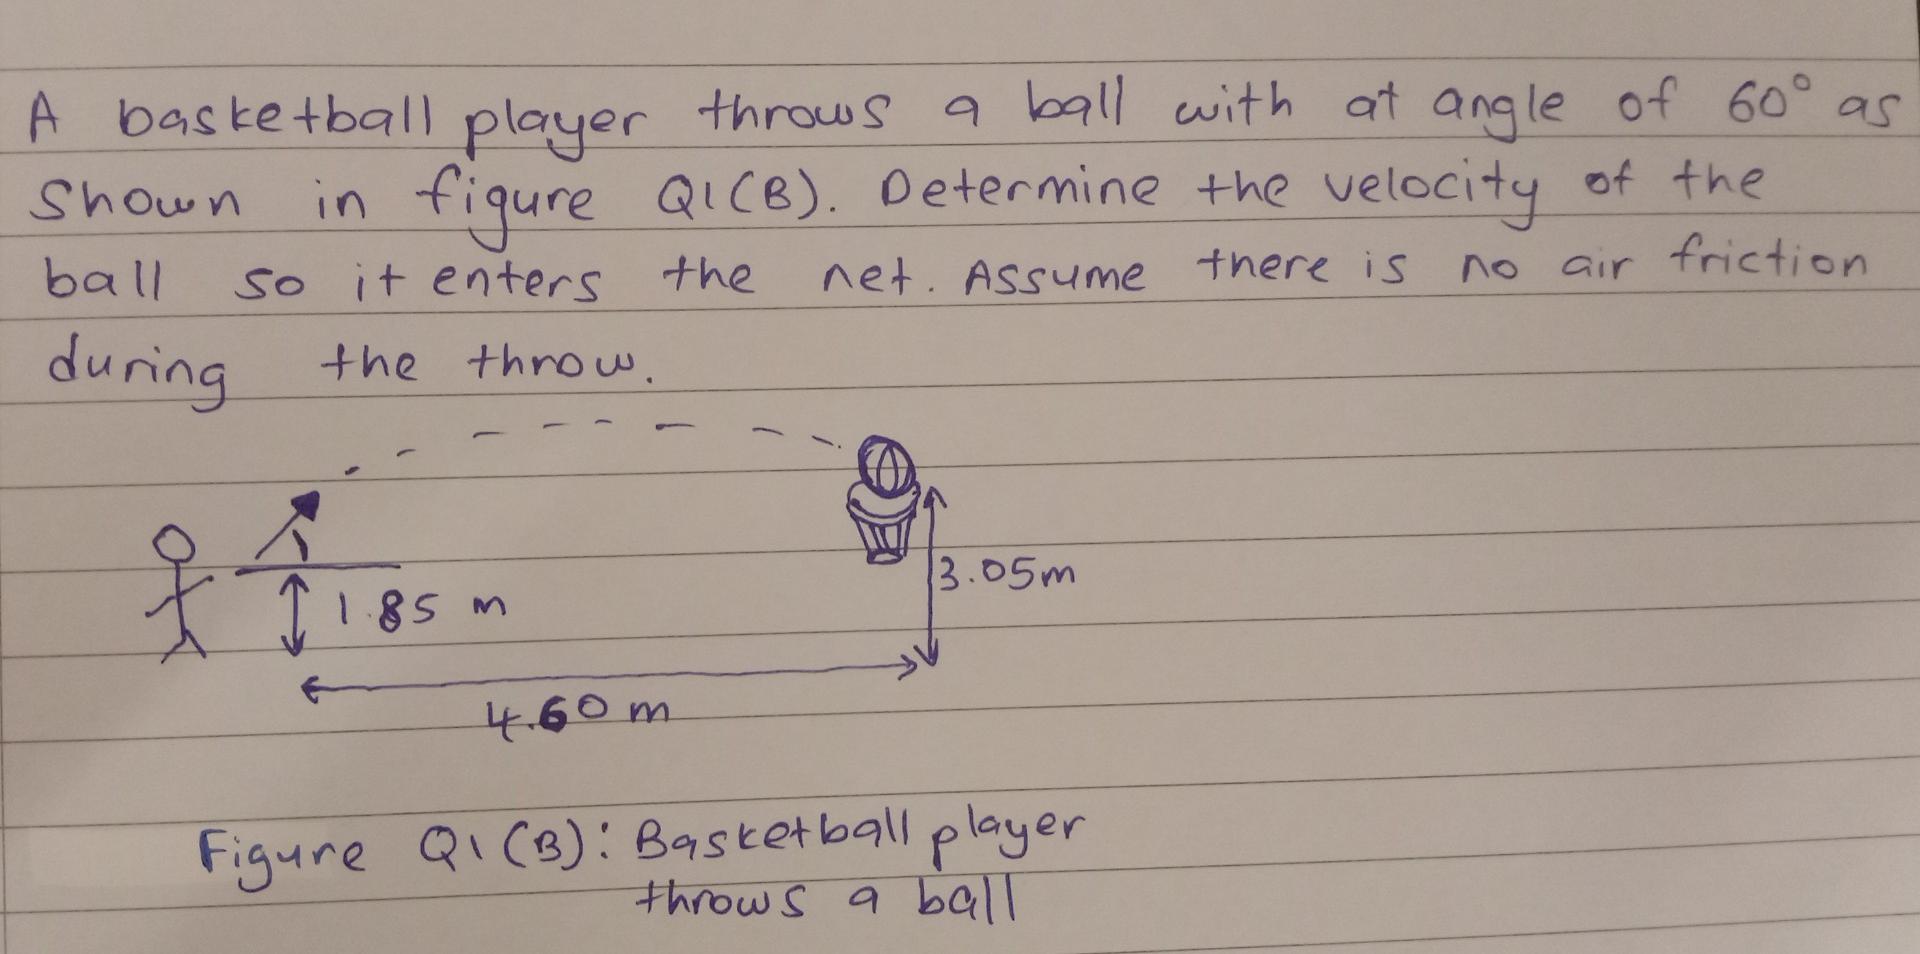 A basketball player throws a ball with at angle of 60° as
shown in figure Q1(B). Determine the velocity of the
ball so it enters the net. Assume there is no air friction
during the throw.
1.85 m
3.05m
4.60 m
Figure Q1(B): Basketball player
throws a ball